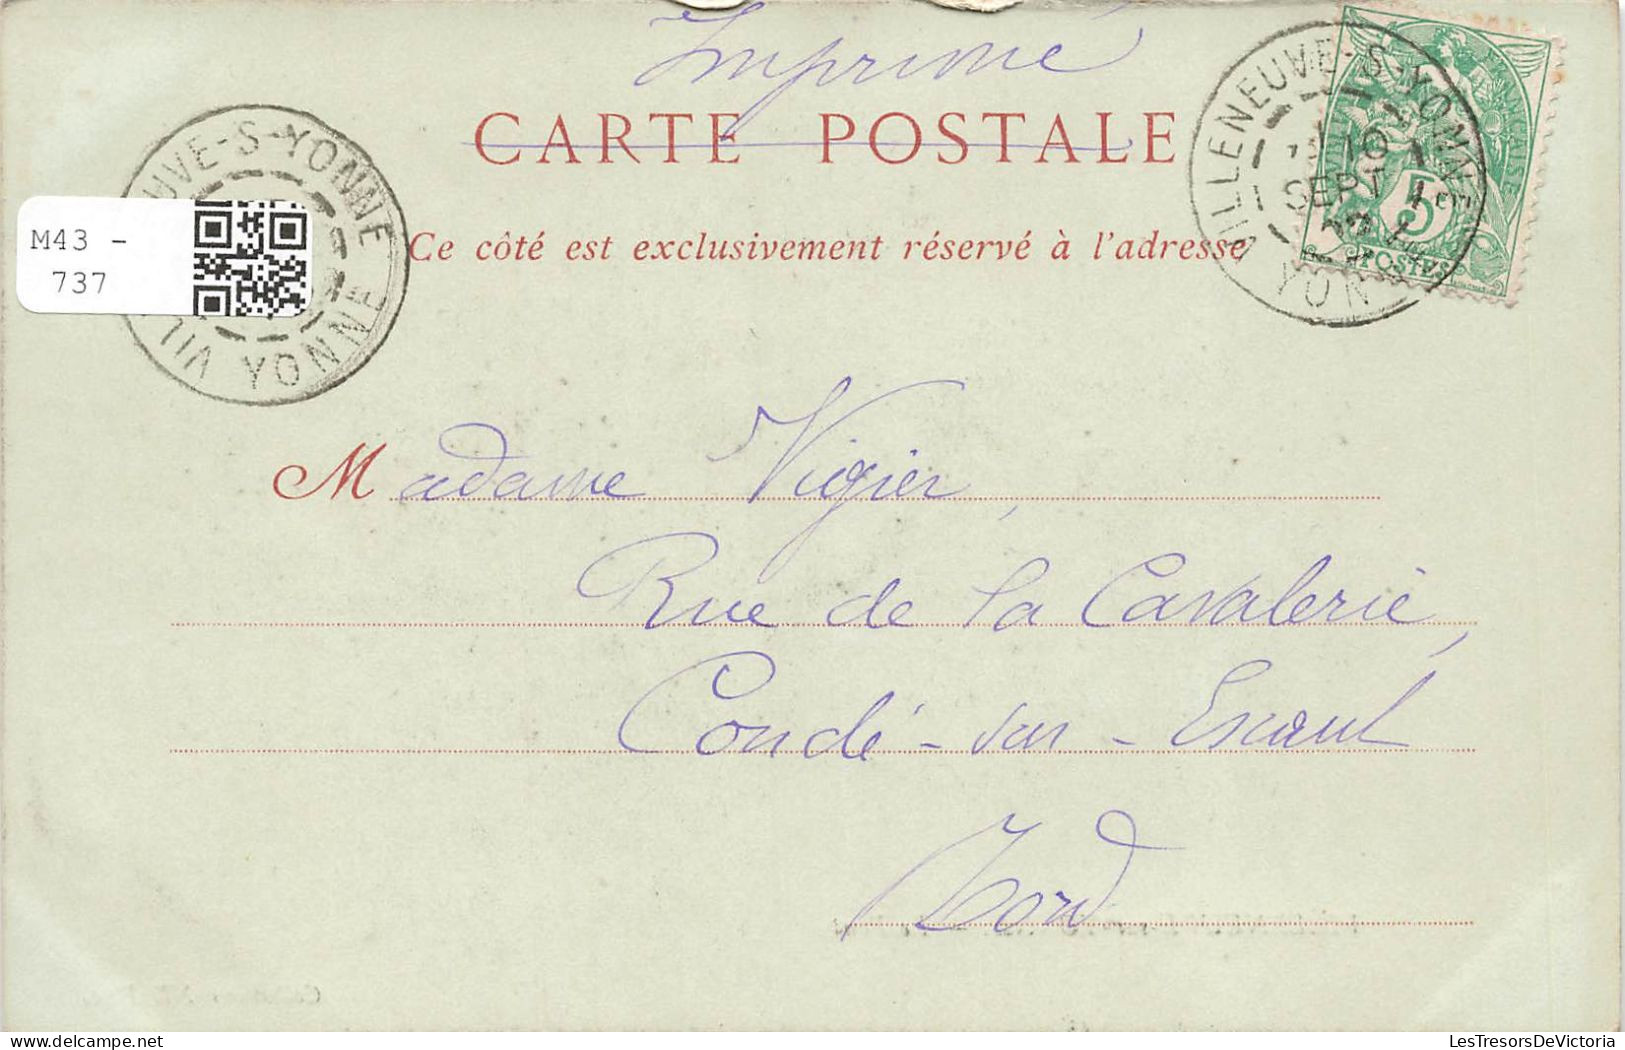 Imprimé
CARTE POSTALE
Ce côté est exclusivement réservé à l'adresse
M43 -
737
VILLENEUVE-S-YONNE
16
SEPT
YON
5
POSTES
UVE-S-YONNE
VIL
YONNE
Madame Vigier,
Rue de la Cavalerie,
Condé-sur-Escaut
Nord
LesTresorsDeVictoria